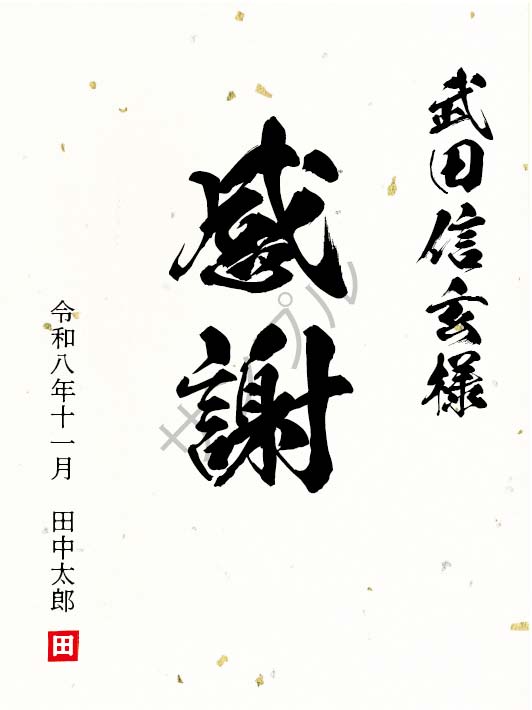 武田信玄様
感謝
令和八年十一月 田中太郎
田
サンプル